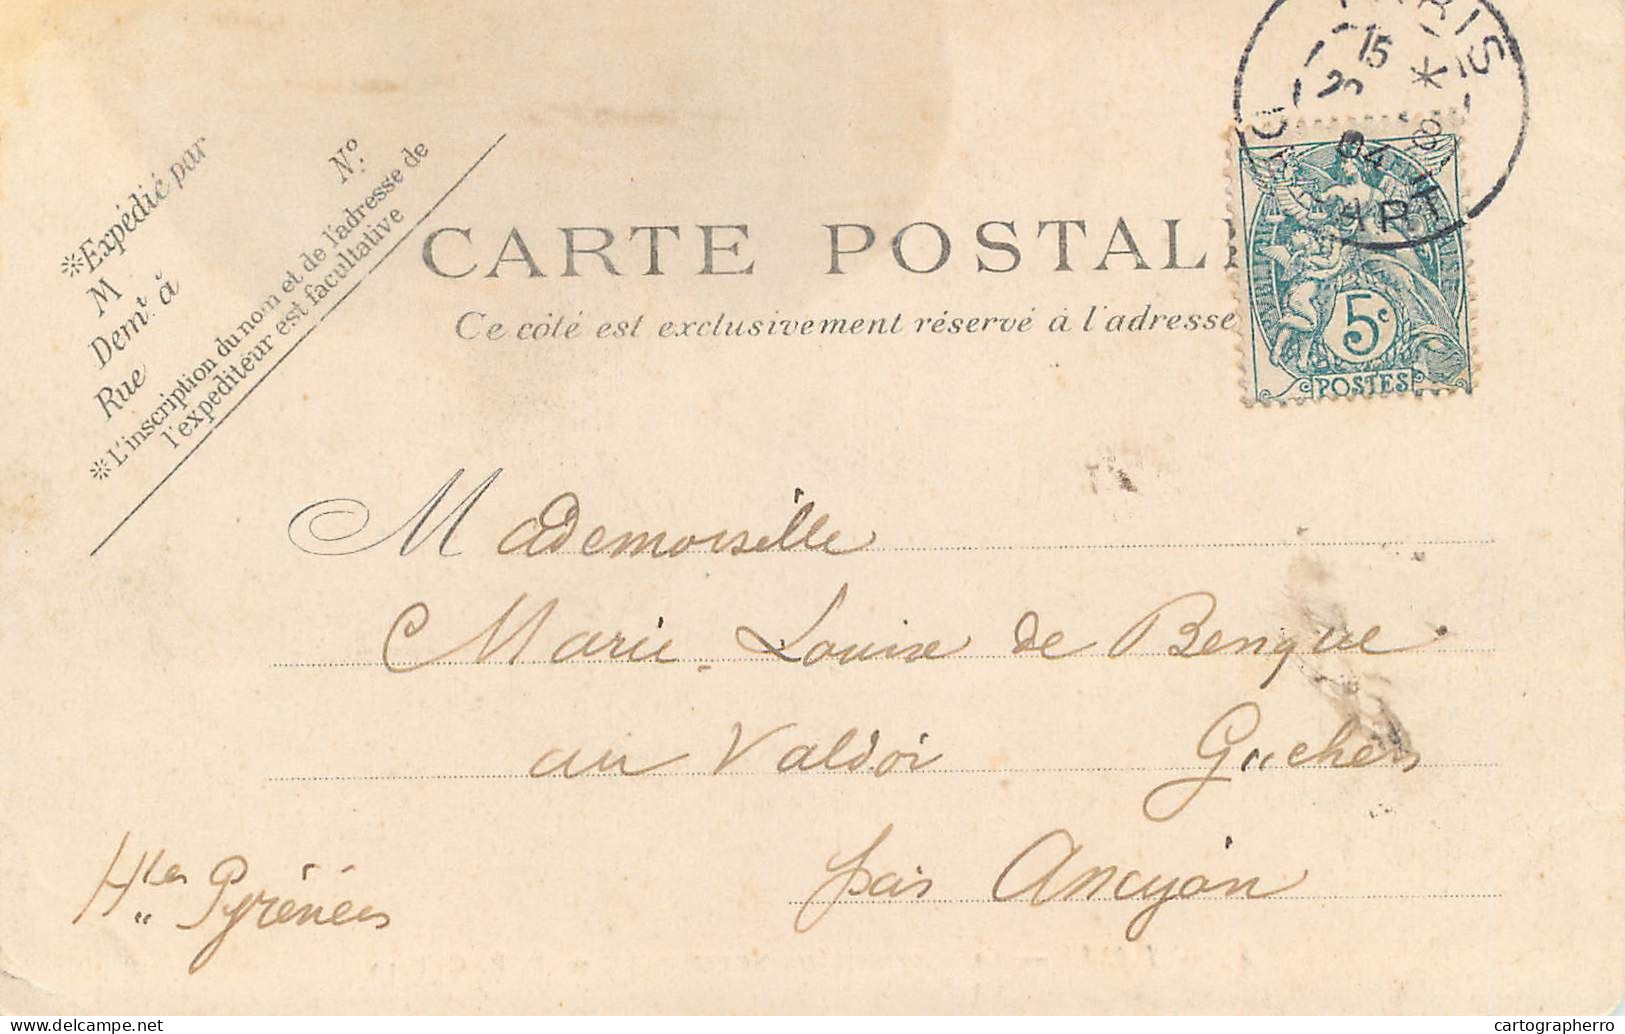 PARIS
15
04
DÉPART
*Expédié par
M
Demt à
Rue
No.
*L'inscription du nom et de l'adresse de
l'expéditeur est facultative
CARTE POSTAL
Ce côté est exclusivement réservé à l'adresse
5c
POSTES
Mademoiselle
Marie-Louise de Bengue
au Valdor Guchen
par Ancizan
Htes Pyrénées
cartographerro